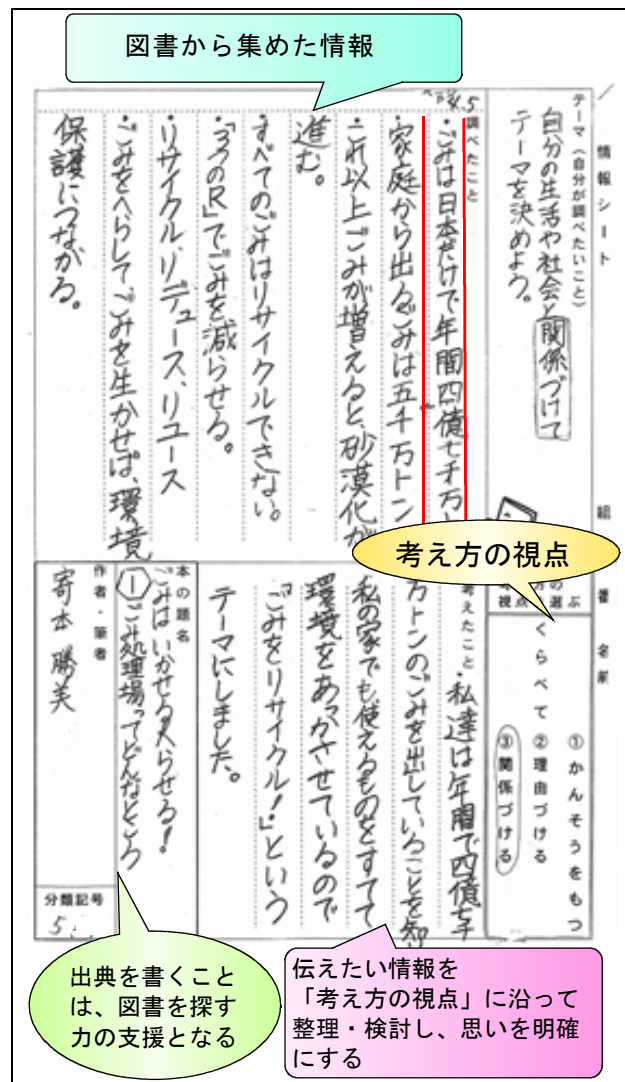 図書から集めた情報
情報シート
組
番
名前
テーマ（自分が調べたいこと）
自分の生活や社会と関係づけて
テーマを決めよう。
調べたこと
・ごみは日本だけで年間四億七千万
・家庭から出るごみは五千万トン
・これ以上ごみが増えると、砂漠化が
進む。
すべてのごみはリサイクルできない。
・「3つのR」でごみを減らせる。
・リサイクル、リデュース、リユース
・ごみをへらして、ごみを生かせば、環境
保護につながる。
考え方の視点
視点 選ぶ
① かんそうをもつ
くらべて ② 理由づける
③ 関係づける
考えたこと
・私達は年間で四億七千
万トンのごみを出していることを知
私の家でも使えるものをすてて
環境をあっかさせているので
「ごみをリサイクル！」という
テーマにしました。
本の題名
ごみはいかせる！へらせる！
① ごみ処理場ってどんなところ
作者・筆者
寄本勝美
分類記号
5
出典を書くこと
は、図書を探す
力の支援となる
伝えたい情報を
「考え方の視点」に沿って
整理・検討し、思いを明確
にする